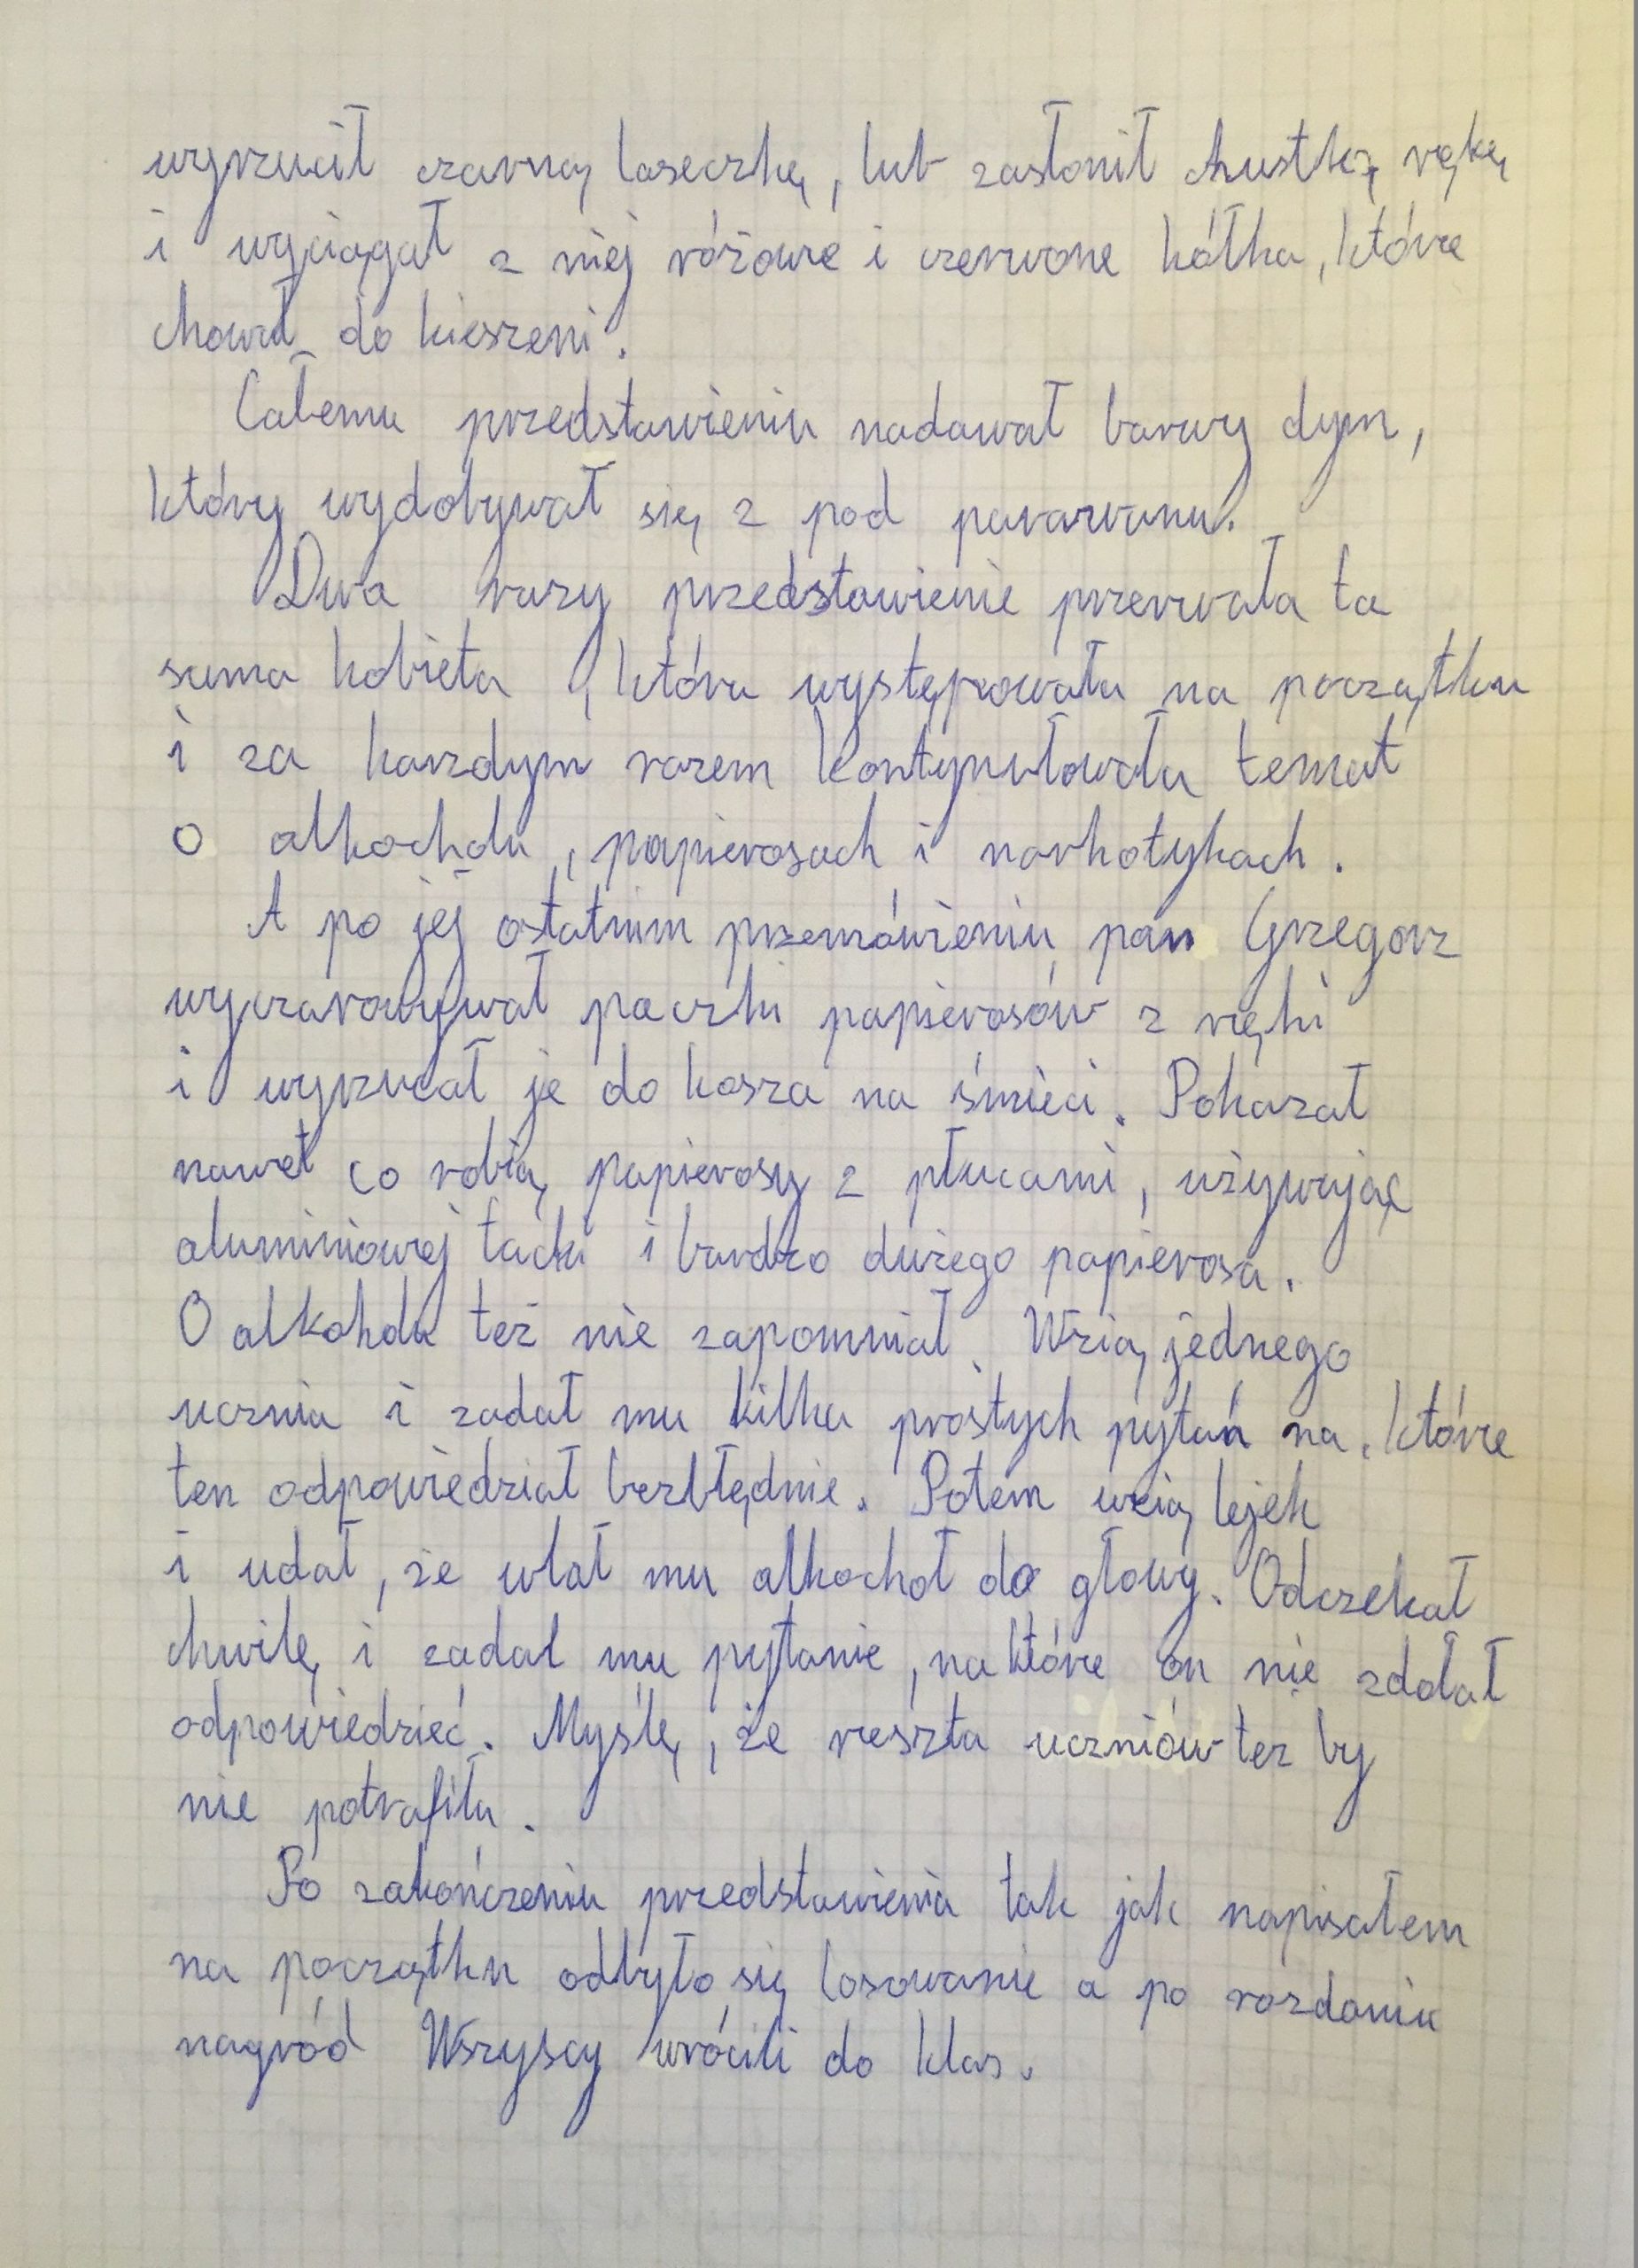 wyrzucił czarną laseczkę, lub zasłonił chustką rękę
i wyciągał z niej różowe i czerwone kółka, które
chował do kieszeni.
Całemu przedstawieniu nadawał barwy dym,
który wydobywał się z pod parawanu.
Dwa razy przedstawienie przerwała ta
sama kobieta, która występowała na początku
i za karzdym razem kontynułowała temat
o alkocholu, papierosach i narkotykach.
A po jej ostatnim przemówieniu pan Grzegorz
wyczarowywał paczki papierosów z ręki
i wyrzucał je do kosza na śmieci. Pokazał
nawet co robią papierosy z płucami, używając
aluminiowej tacki i bardzo dużego papierosa.
O alkoholu też nie zapomniał. Wzią jednego
ucznia i zadał mu kilka prostych pytań na, które
ten odpowiedział bezbłędnie. Potem wzią lejek
i udał, że wlał mu alkochol do głowy. Odczekał
chwilę i zadał mu pytanie, na które on nie zdołał
odpowiedzieć. Myślę, że reszta uczniów tez by
nie potrafiła.
Po zakończeniu przedstawienia tak jak napisałem
na początku odbyło się losowanie a po rozdaniu
nagród Wszyscy wrócili do klas.